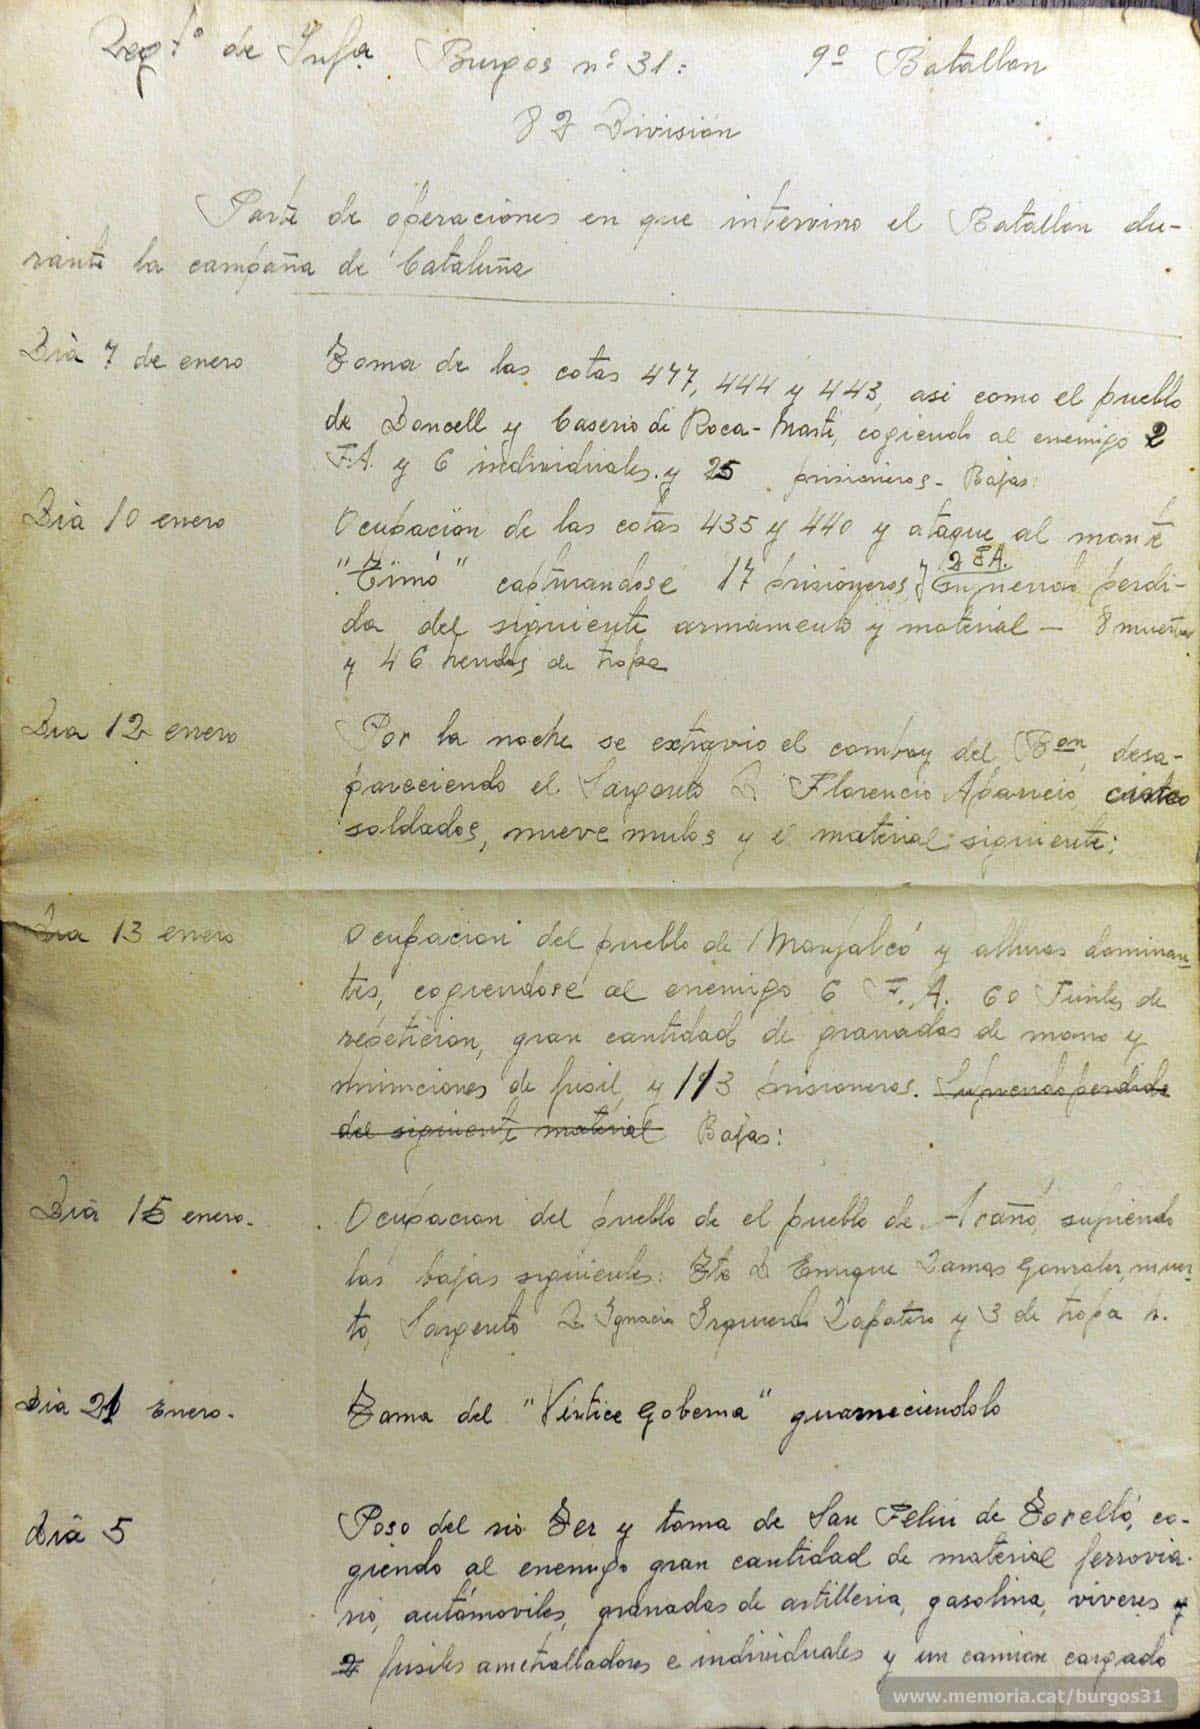 Regtº de Infa Burgos nº 31: 9º Batallon
82 División
Parte de operaciones en que intervino el Batallon du-
rante la campaña de Cataluña
Dia 7 de enero
Toma de las cotas 477, 444 y 443, asi como el pueblo
de Doncell y Caserio de Roca-Marti, cogiendo al enemigo 2
F.A. y 6 individuales y 25 prisioneros - Bajas:
Dia 10 enero
Ocupación de las cotas 435 y 440 y ataque al monte
2 F.A.
"Timó" capturandose 17 prisioneros, y sufriendo perdi-
da del siguiente armamento y material - 8 muertos
y 46 heridos de tropa
Dia 12 enero
Por la noche se extravio el comboy del Bon, desa-
pareciendo el Sargento D Florencio Aparicio,
soldados, nueve mulos y el material siguiente:
Dia 13 enero
Ocupacion del pueblo de Monfalcó y alturas dominan-
tes, cogiendose al enemigo 6 F.A. 60 Fusiles de
repeticion, gran cantidad de granadas de mano y
municiones de fusil y 113 prisioneros. Sufriendo perdida
del siguiente material Bajas:
Dia 15 enero.
Ocupacion del pueblo de el pueblo de Arañó, sufriendo
las bajas siguientes: Tte D Enrique Lamas Gonzalez, muer-
to, Sargento D Ignacio Izquierdo Zapatero y 3 de tropa h.
Dia 21 Enero.
Toma del "Vértice Goberna" guarneciendolo
Dia 5
Paso del rio Ter y toma de San Feliu de Torelló, co-
giendo al enemigo gran cantidad de material ferrovia-
rio, automoviles, granadas de artilleria, gasolina, viveres y
2 fusiles ametralladores e individuales y un camion cargado
www.memoria.cat/burgos31